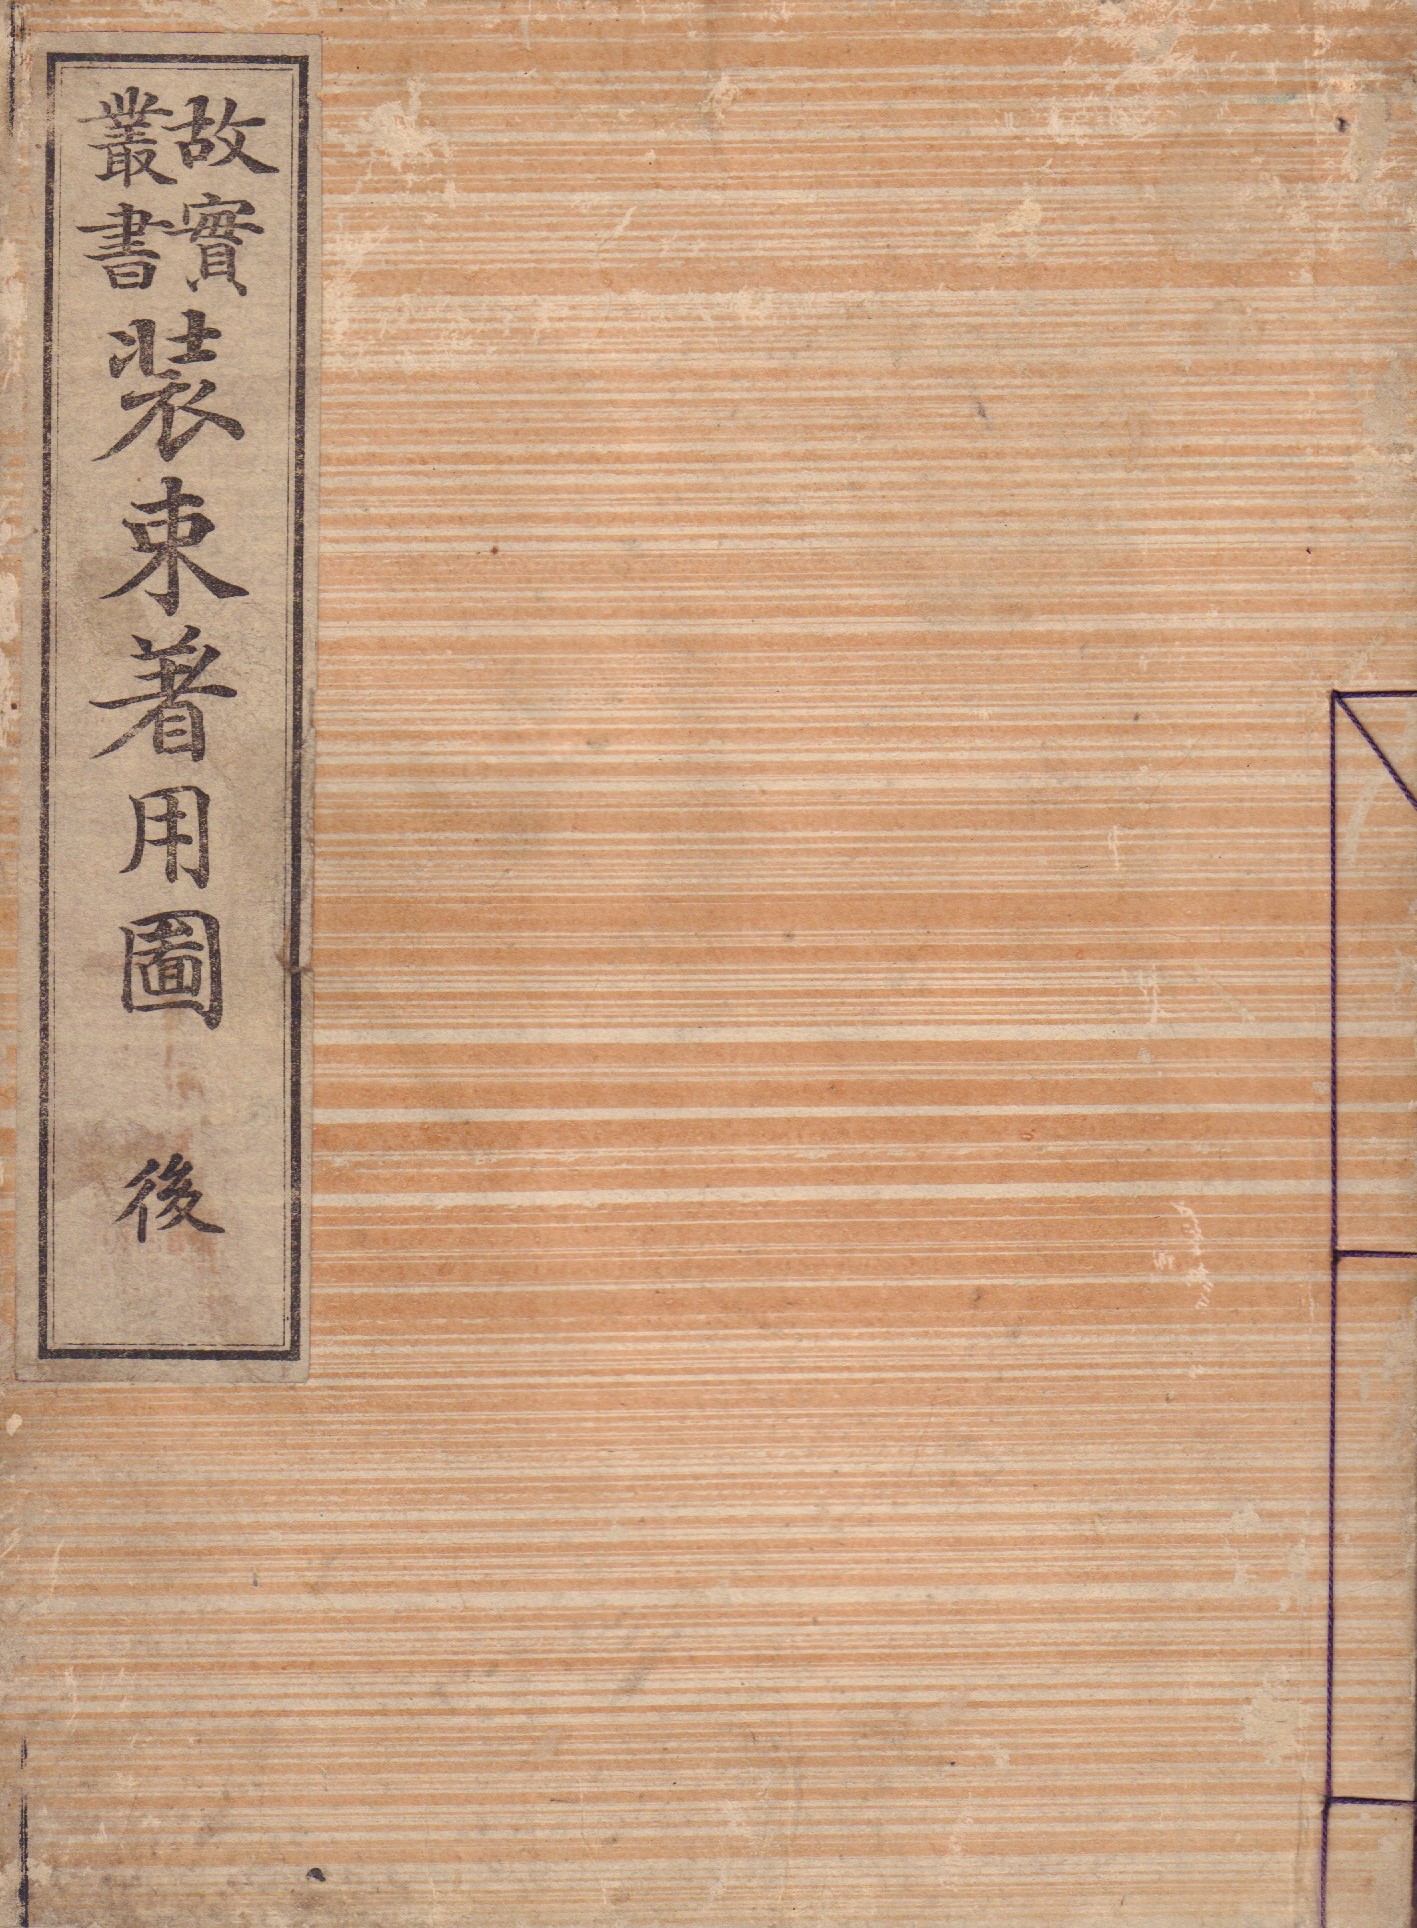 故實
叢書
装束著用圖 後